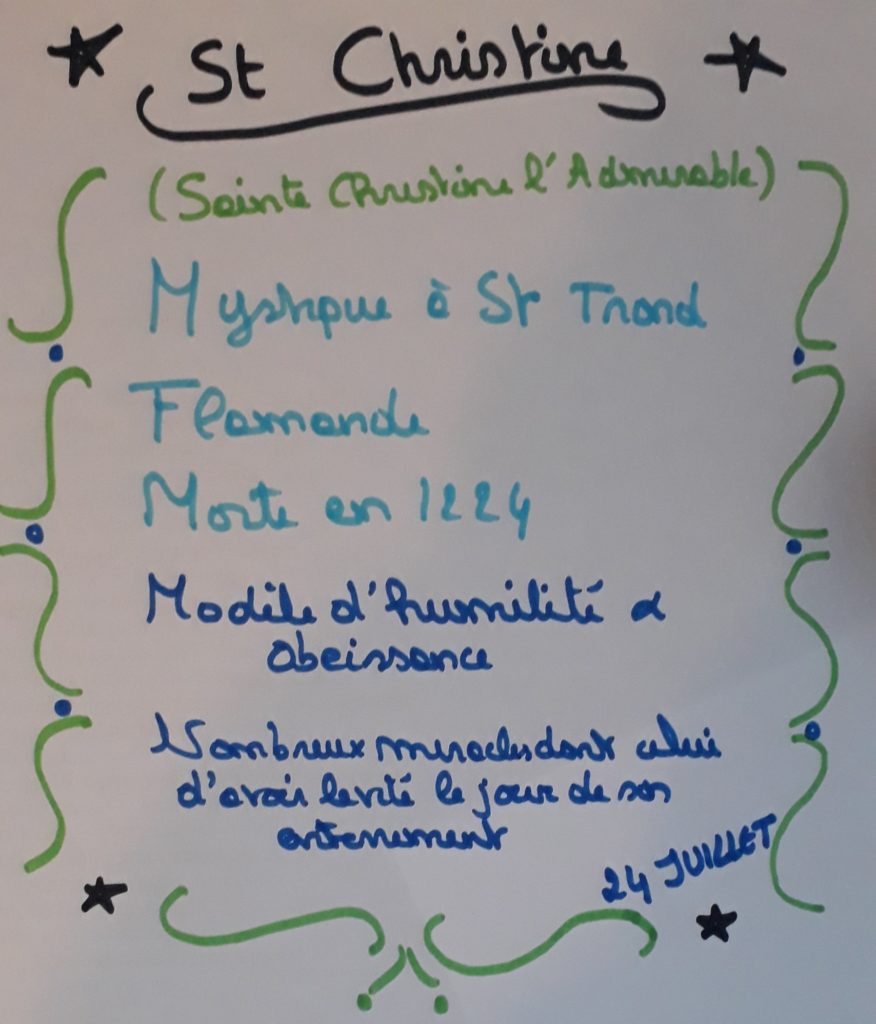 St Christine
(Sainte Christine l'Admirable)
Mystique à St Trond
Flamande
Morte en 1224
Modèle d'humilité &
obeissance
Nombreux miracles dont celui
d'avoir levité le jour de son
enterrement
24 JUILLET